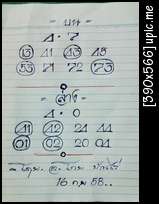 - บน -
4 - 7
13 41 43 48
53 71 72 73
- ล่าง -
4 - 0
41 42 24 44
01 02 20 04
16 กพ 58..
[390x566] uplc.me